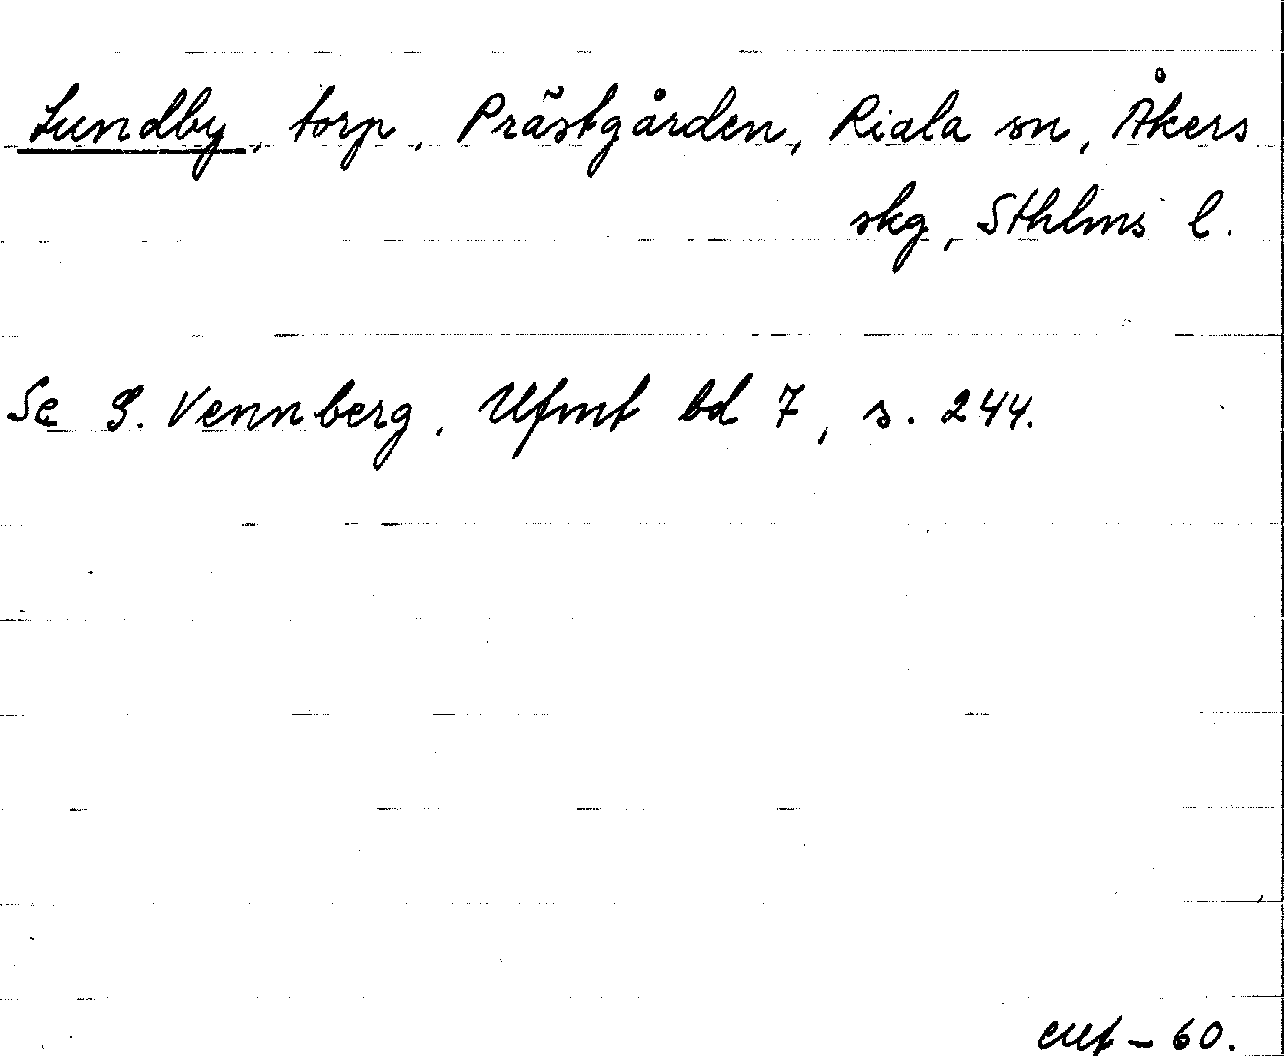 Lundby, torp, Prästgården, Riala sn, Åkers
skg, Sthlms l.
Se G. Vennberg, Ufmt bd 7, s. 244.
- 60.